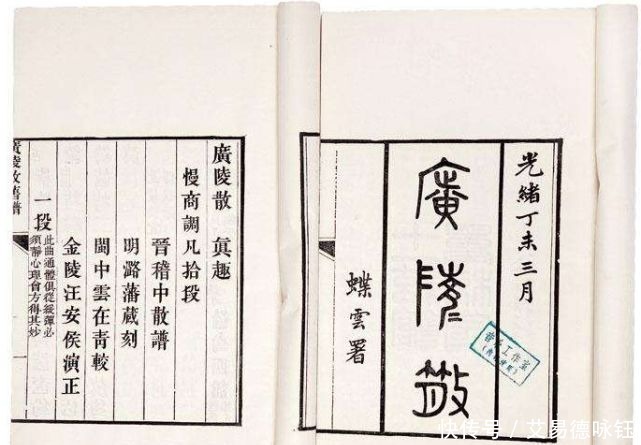 光緒丁未三月
廣陵散
蝶雲署
廣陵散 真趣
慢商調凡拾段
晉嵇中散譜
明潞藩蔵刻
閩中雲在青較
金陵汪安侯演正
一段
此曲通體俱從緩彈必
須靜心理會方得其妙
廣陵散舊譜
工作室
快传号/艾易德咏钰